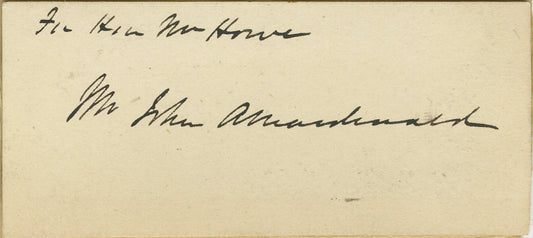 For Hon Mr Howe
Mr John A Macdonald